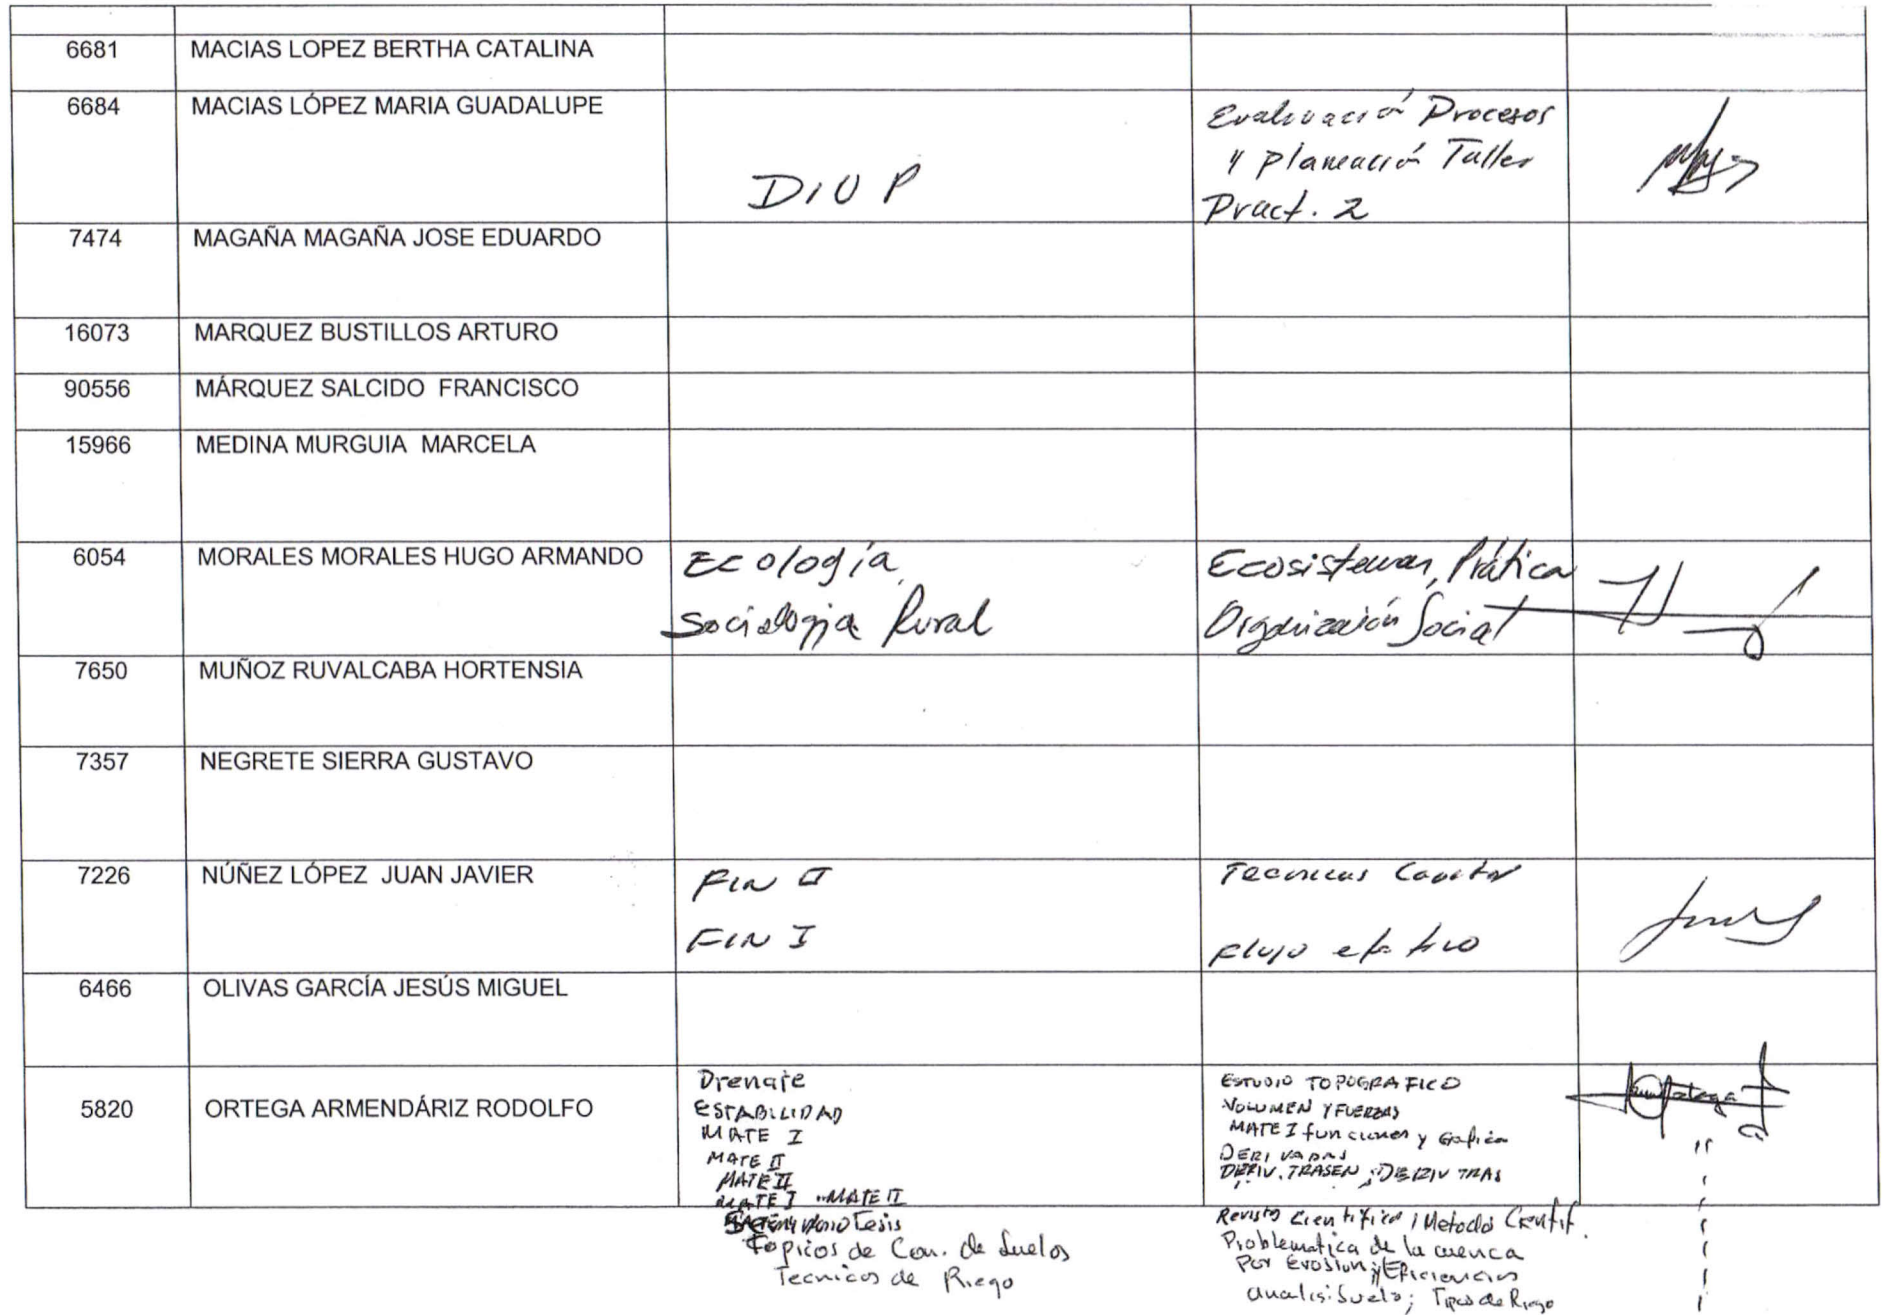 6681 MACIAS LOPEZ BERTHA CATALINA
6684 MACIAS LÓPEZ MARIA GUADALUPE
DIUP
Evaluación Procesos
y planeación Taller
Pract. 2
7474 MAGAÑA MAGAÑA JOSE EDUARDO
16073 MARQUEZ BUSTILLOS ARTURO
90556 MÁRQUEZ SALCIDO FRANCISCO
15966 MEDINA MURGUIA MARCELA
6054 MORALES MORALES HUGO ARMANDO
Ecología
Sociologia Rural
Ecosistemas, Prática
Organización Social
7650 MUÑOZ RUVALCABA HORTENSIA
7357 NEGRETE SIERRA GUSTAVO
7226 NÚÑEZ LÓPEZ JUAN JAVIER
FIN II
FIN I
Tecnicas
Flujo efectivo
6466 OLIVAS GARCÍA JESÚS MIGUEL
5820 ORTEGA ARMENDÁRIZ RODOLFO
Drenaje
ESTABILIDAD
MATE I
MATE II
MATE II
MATE I MATE II
Tesis
Topicos de Con. de Suelos
Tecnicas de Riego
ESTUDIO TOPOGRAFICO
VOLUMEN Y FUERZAS
MATE I funciones y Grafica
DERIVADAS
DERIV. TRASEN ; DERIV TRAS
Revista Cientifica / Metodo Cientif.
Problematica de la cuenca
Por Erosion y Eficiencias
analisis Suelo; Tipos de Riego